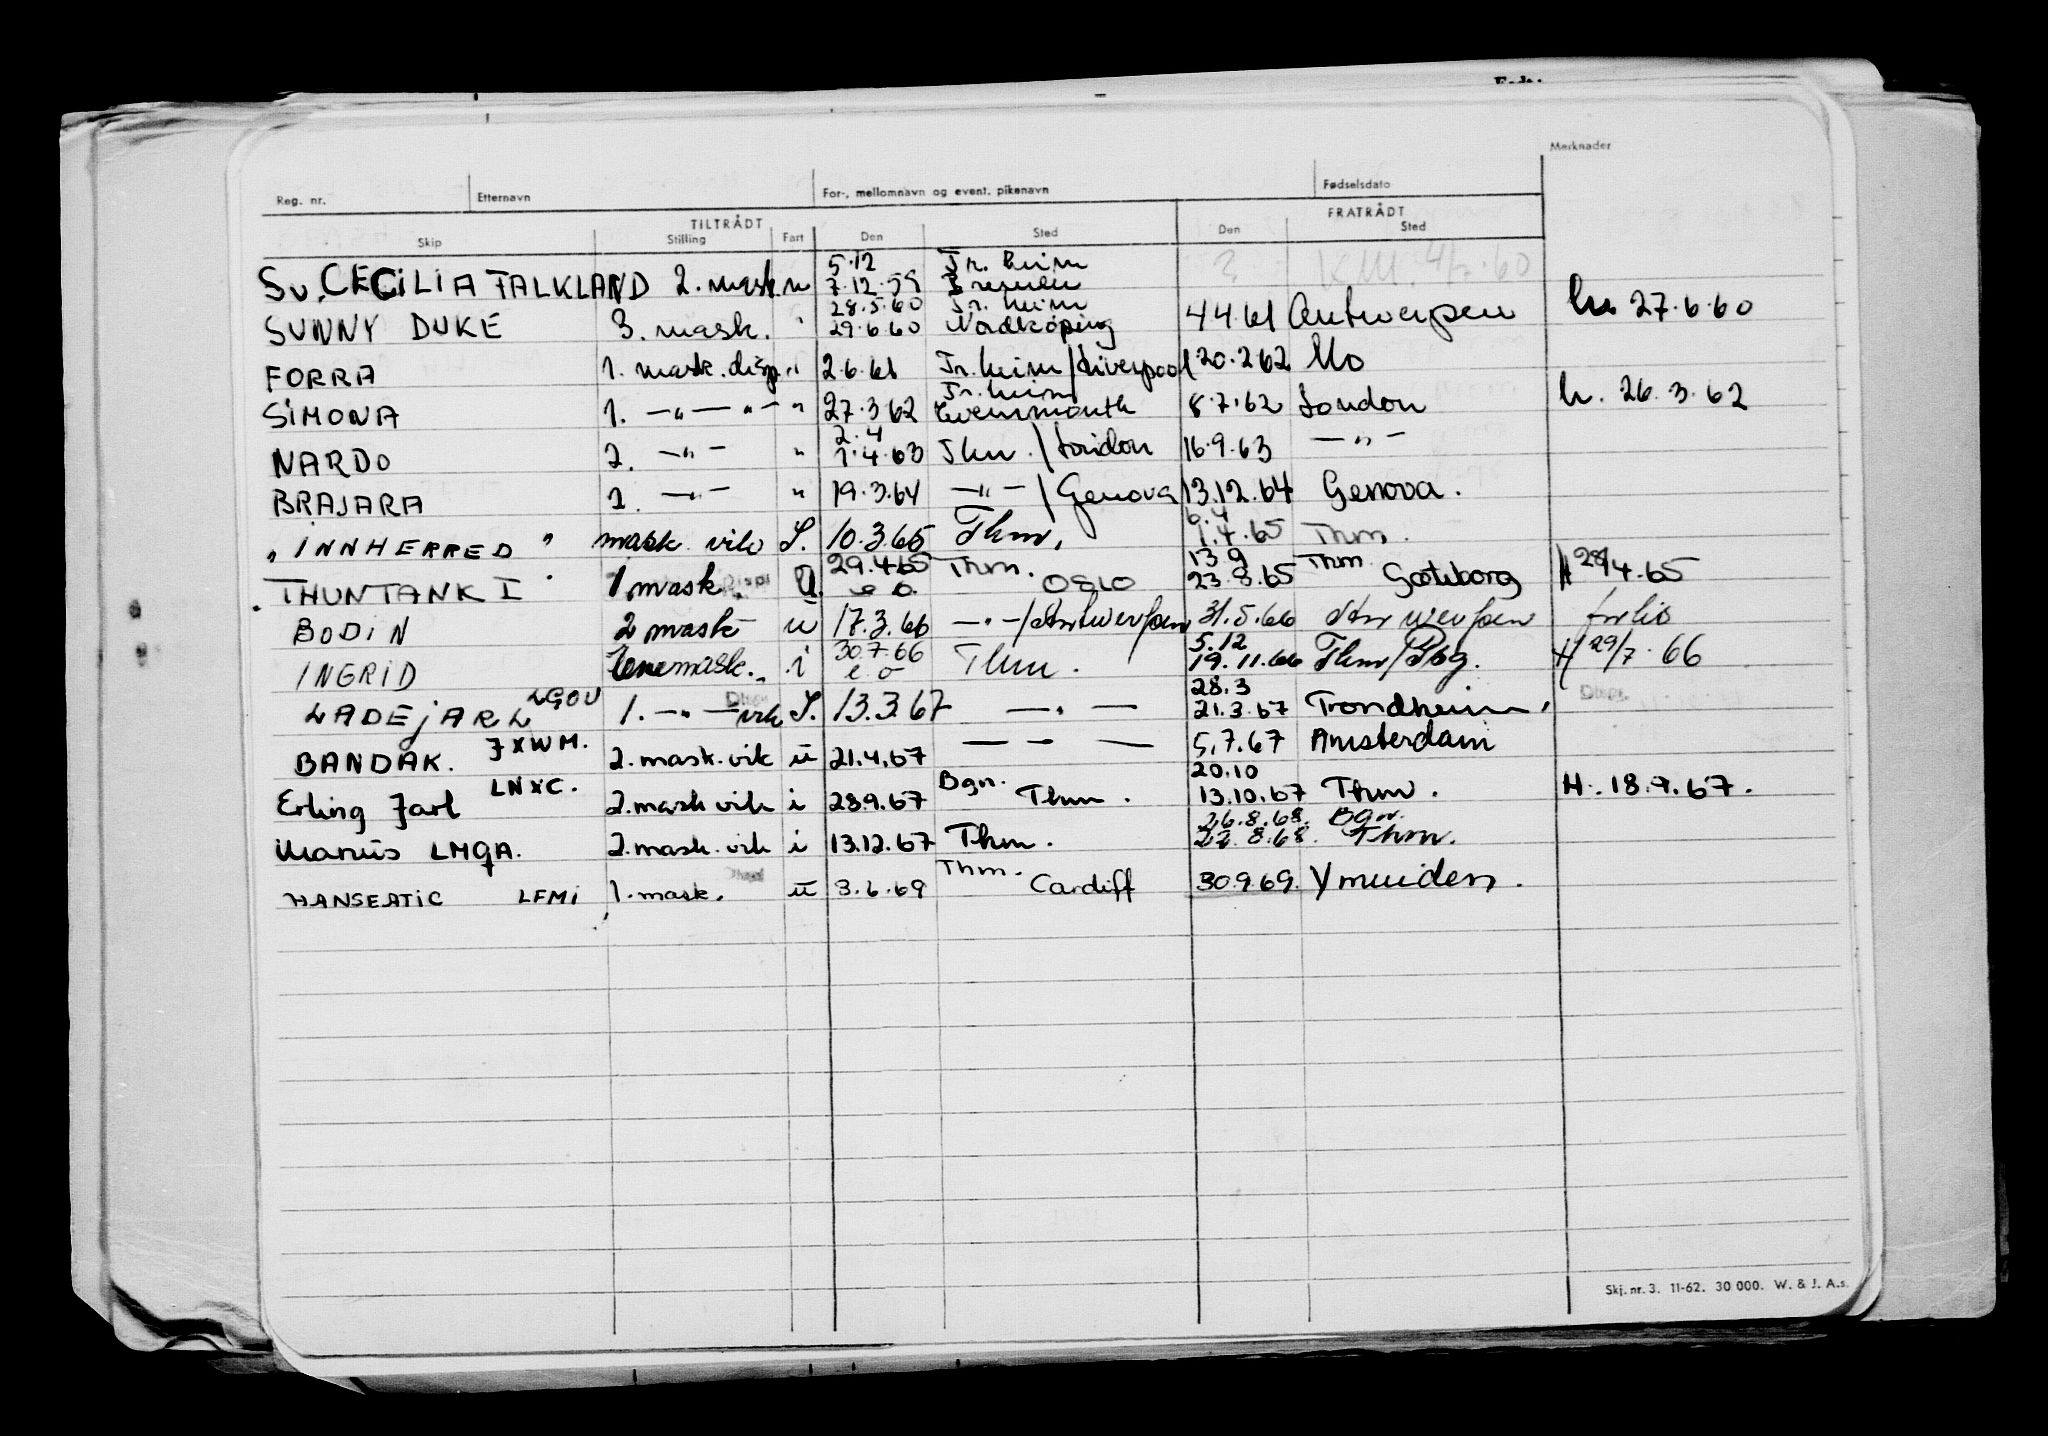 Merknader
Reg. nr. Etternavn For-, mellomnavn og event. pikenavn Fødselsdato
TILTRÅDT FRATRÅDT
Skip Stilling Fart Den Sted Den Sted
5.12 Tr.heim
Sv. CECILIA FALKLAND 2. mask. u 7.12.59 Bremen KM. 4/7.60
28.5.60 Tr.heim
SUNNY DUKE 3. mask. " 29.6.60 Nordköping 4 4.61 Antwerpen h. 27.6.60
FORRA 1. mask. disp. " 2.6.61 Tr.heim/Liverpool 20.2 62 Mo
Tr.heim
SIMONA 1. —"— "— " 27.3 62 8.7.62 London h. 26.3.62
2.4
NARDO 2. —"— " 1.4.63 Thm./London 16.9.63 —"—
BRAJARA 1. —"— " 19.3.64 —"—/Genova 13.12.64 Genova.
6.4
" INNHERRED " mask. vik S. 10.3.65 Thm. 1.4.65 Thm.
29.4.65 Thm. 13 9 Thm.
" THUNTANK I " 1 mask. Displ U. e o. OSLO 23.8.65 Gøteborg H 28/4.65
BODIN 2 mask u 17.3.66 —"—/Antwerpen 31.5.66 Antwerpen
30.7.66 5.12
INGRID Enemask. i e o Thm. 19.11.66 Thm/Pbg. H 29/7.66
LGOU 28.3
LADEJARL 1. —"— vik S. 13.3.67 —"— 21.3.67 Trondheim.
BANDAK. JXWM. 2. mask. vik u 21.4.67 —"— 5.7.67 Amsterdam
LNXC. Bgn. 20.10
Erling Jarl 2. mask vik i 28.9.67 Thm. 13.10.67 Thm. H. 18.9.67.
26.8.68. Bgn.
Marius LMQA. 2. mask. vik i 13.12.67 Thm. 22.8.68. Thm.
Thm.
HANSEATIC LFMI 1. mask. u 3.6.69 Cardiff 30.9.69. Ymuiden.
Skj. nr. 3. 11-62. 30 000. W. & J. A.s.